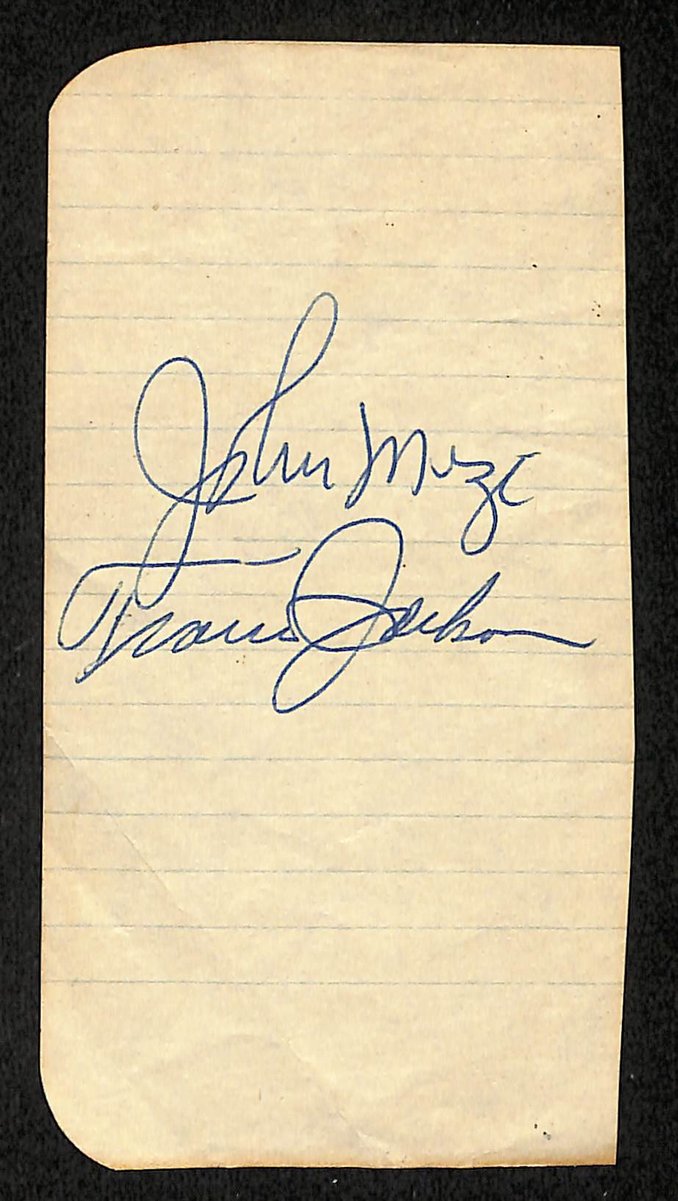 John Mize
Travis Jackson